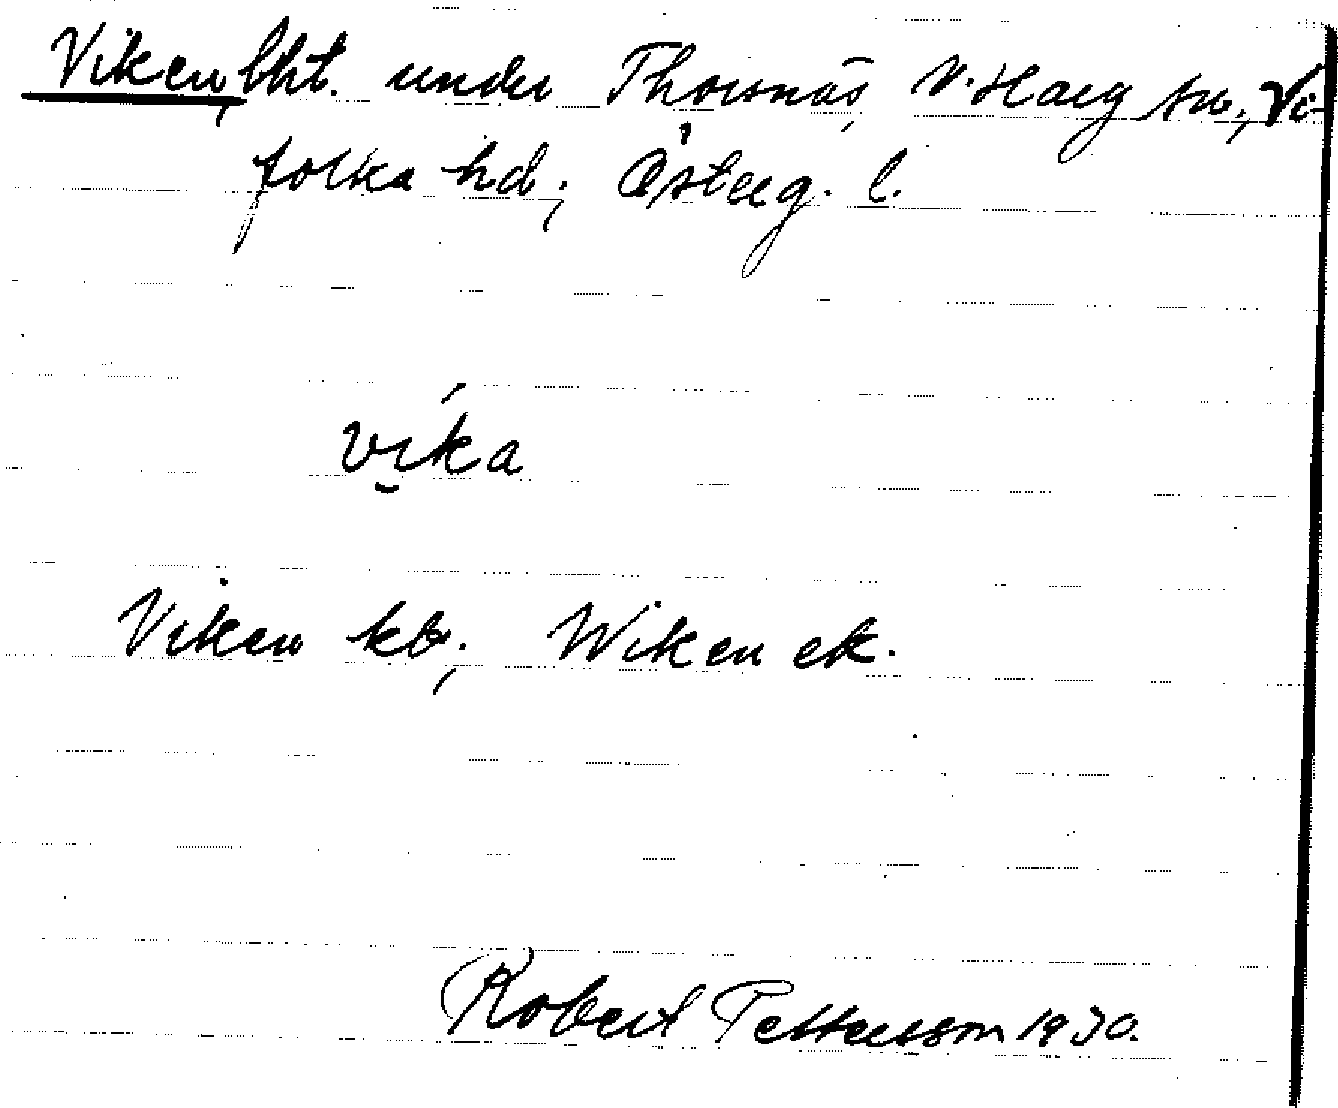 Viken, lht. under Thorsnäs, V. Harg sn, Vi-
folka hd; Österg. l.
vika
Viken kb; Wiken ek.
Robert Pettersson 1930.